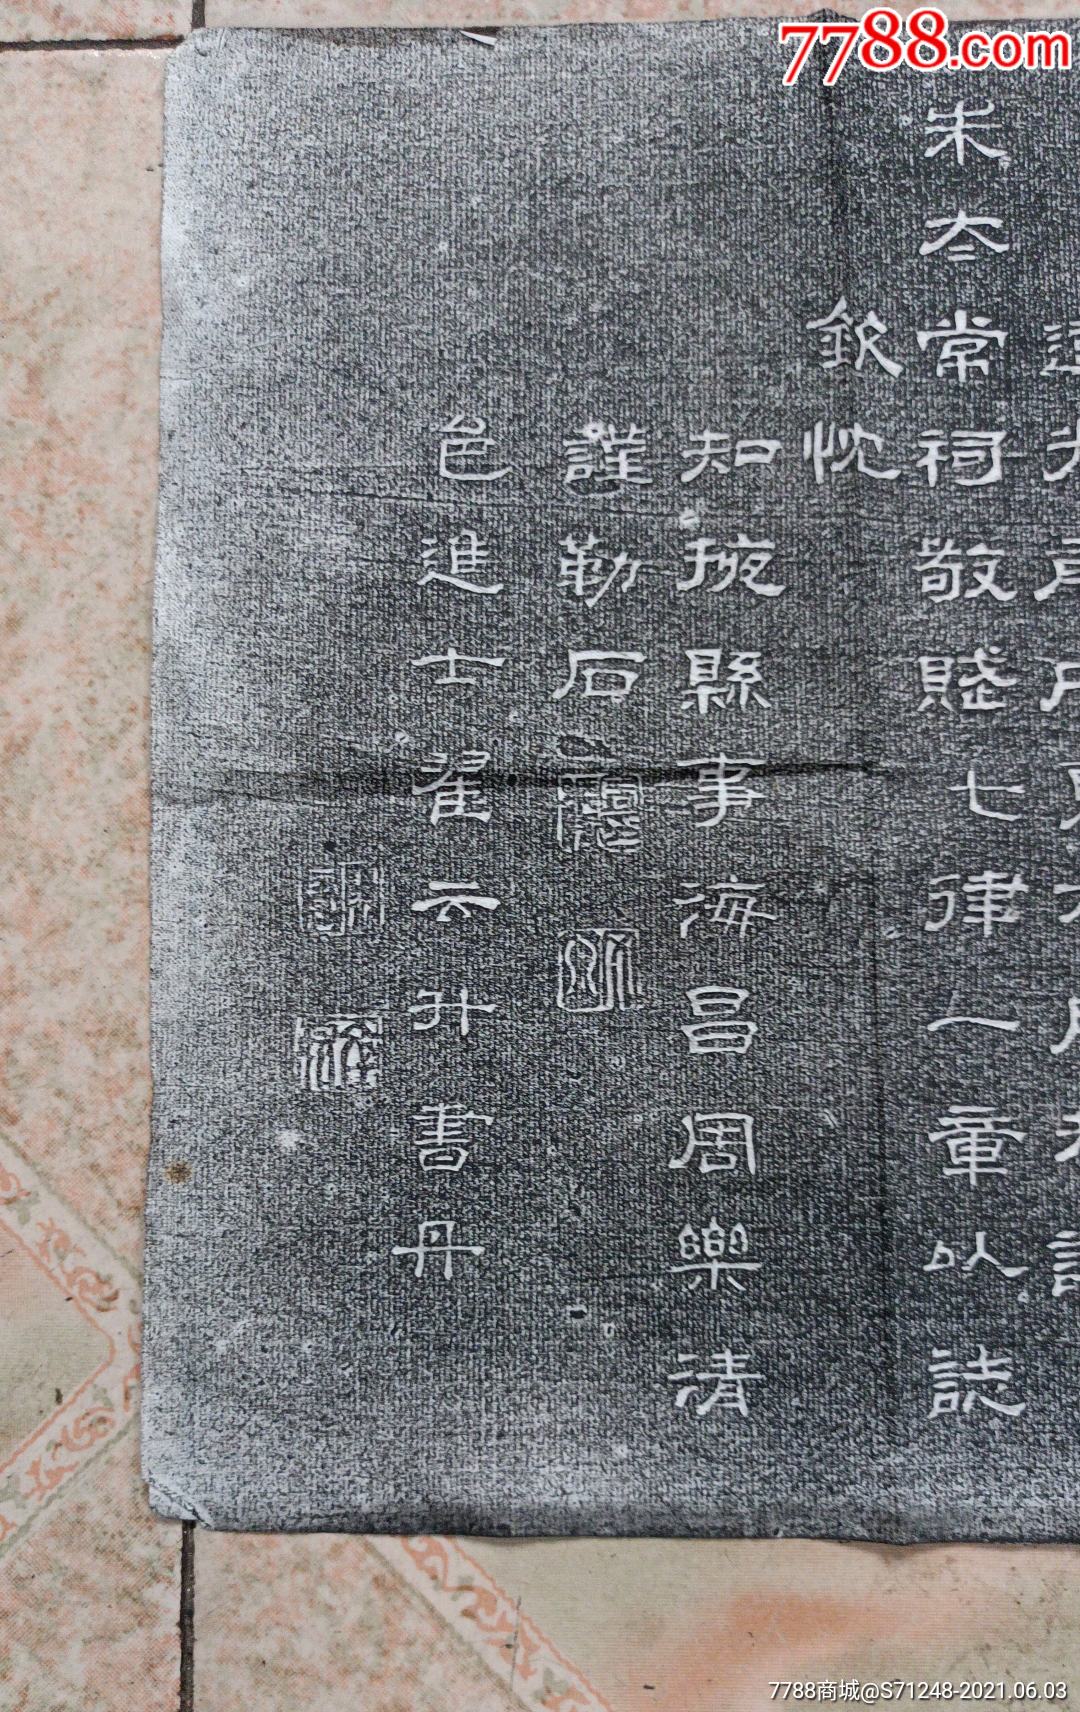 7788.com
朱夳常祠敬賦七律一章以誌
欽忱
知掖縣事海昌周樂清
謹勒石
邑進士翟云升書丹
7788商城@S71248-2021.06.03